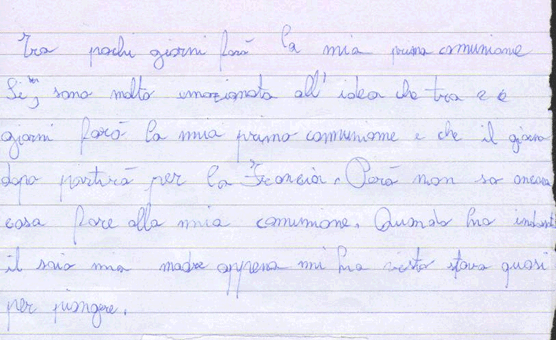 Tra pochi giorni farò la mia prima comunione
Sì, sono molto emozionata all'idea che tra 2 o
giorni farò la mia prima comunione e che il giorno
dopo partirò per la Francia. Però non so ancora
cosa fare alla mia comunione. Quando ho indoss
il saio mia madre appena mi ha vista stava quasi
per piangere.